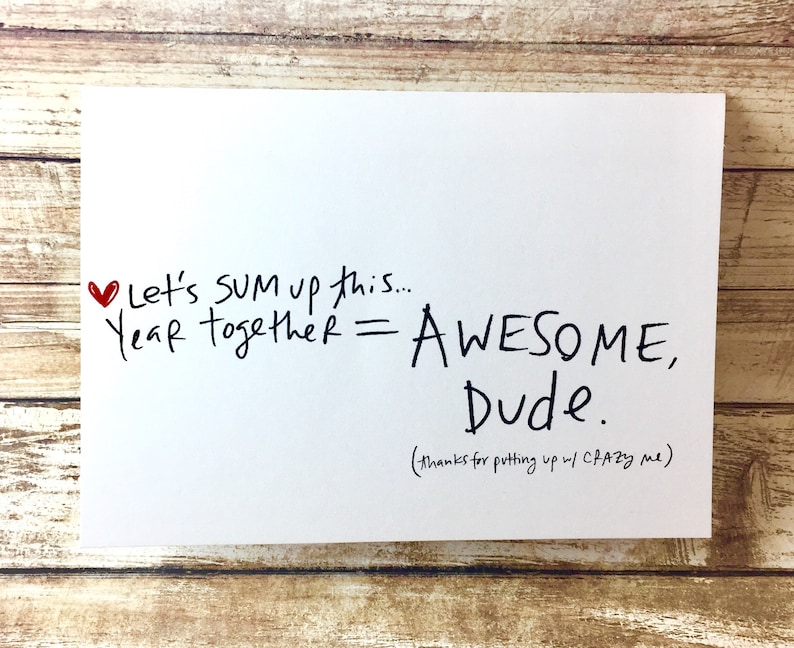 Let's SUM up this...
Year together = AWESOME,
Dude.
(thanks for putting up w/ CRAZY me)